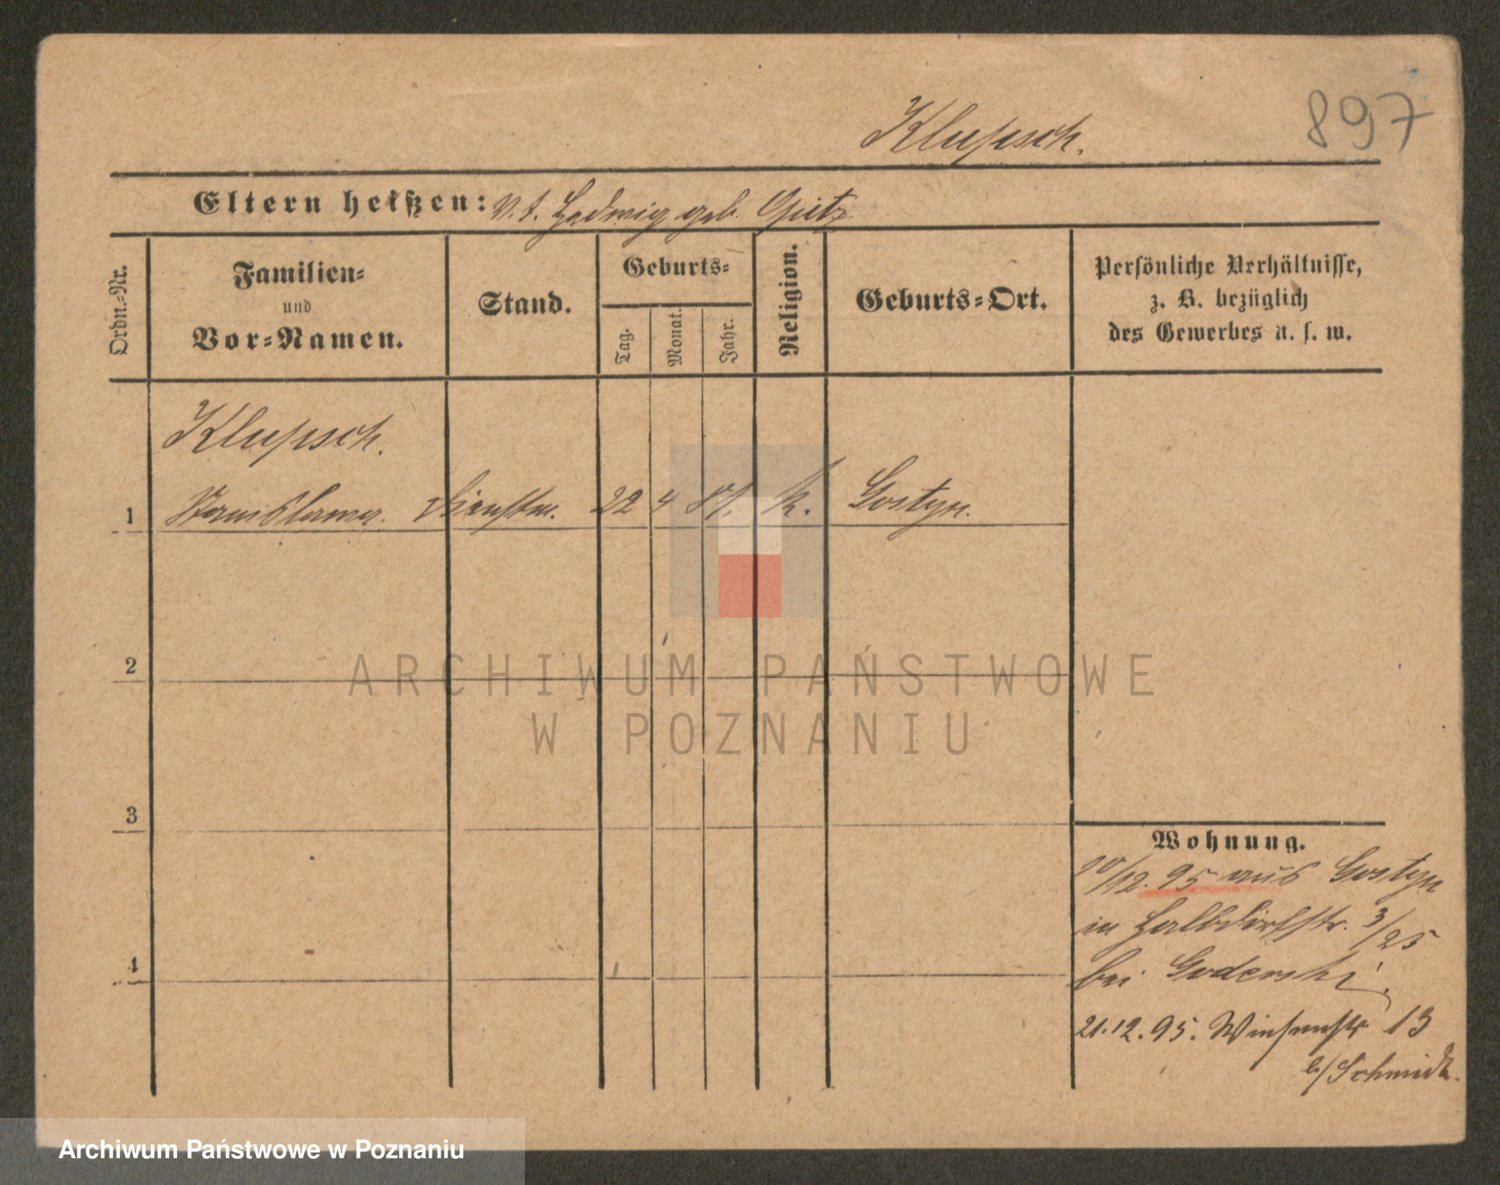 897
Klupsch.
Eltern heißen: v. t. Hedwig geb. Gietz
Ordn.-Nr.
Familien-
und
Vor-Namen.
Stand.
Geburts-
Tag.
Monat.
Jahr.
Religion.
Geburts-Ort.
Persönliche Verhältnisse,
z. B. bezüglich
des Gewerbes u. s. w.
Klupsch.
1 Stanislawa. Dienstm. 22 4 81. k. Gostyn.
2
ARCHIWUM PAŃSTWOWE
W POZNANIU
3
Wohnung.
/12. 95 aus Gostyn
in Halbdorfstr. 3/25
4
bei Goderski.
21.12.95. Wiesenstr 13
b/Schmidt.
Archiwum Państwowe w Poznaniu